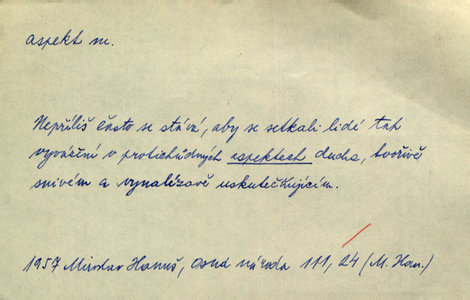 aspekt m.
Nepříliš často se stává, aby se setkali lidé tak
vyvážení v protichůdných aspektech ducha, tvořivě
snivém a vynalézavě uskutečňujícím.
1957 Miroslav Hanuš, Osud národa 111, 24 (M. Han.)